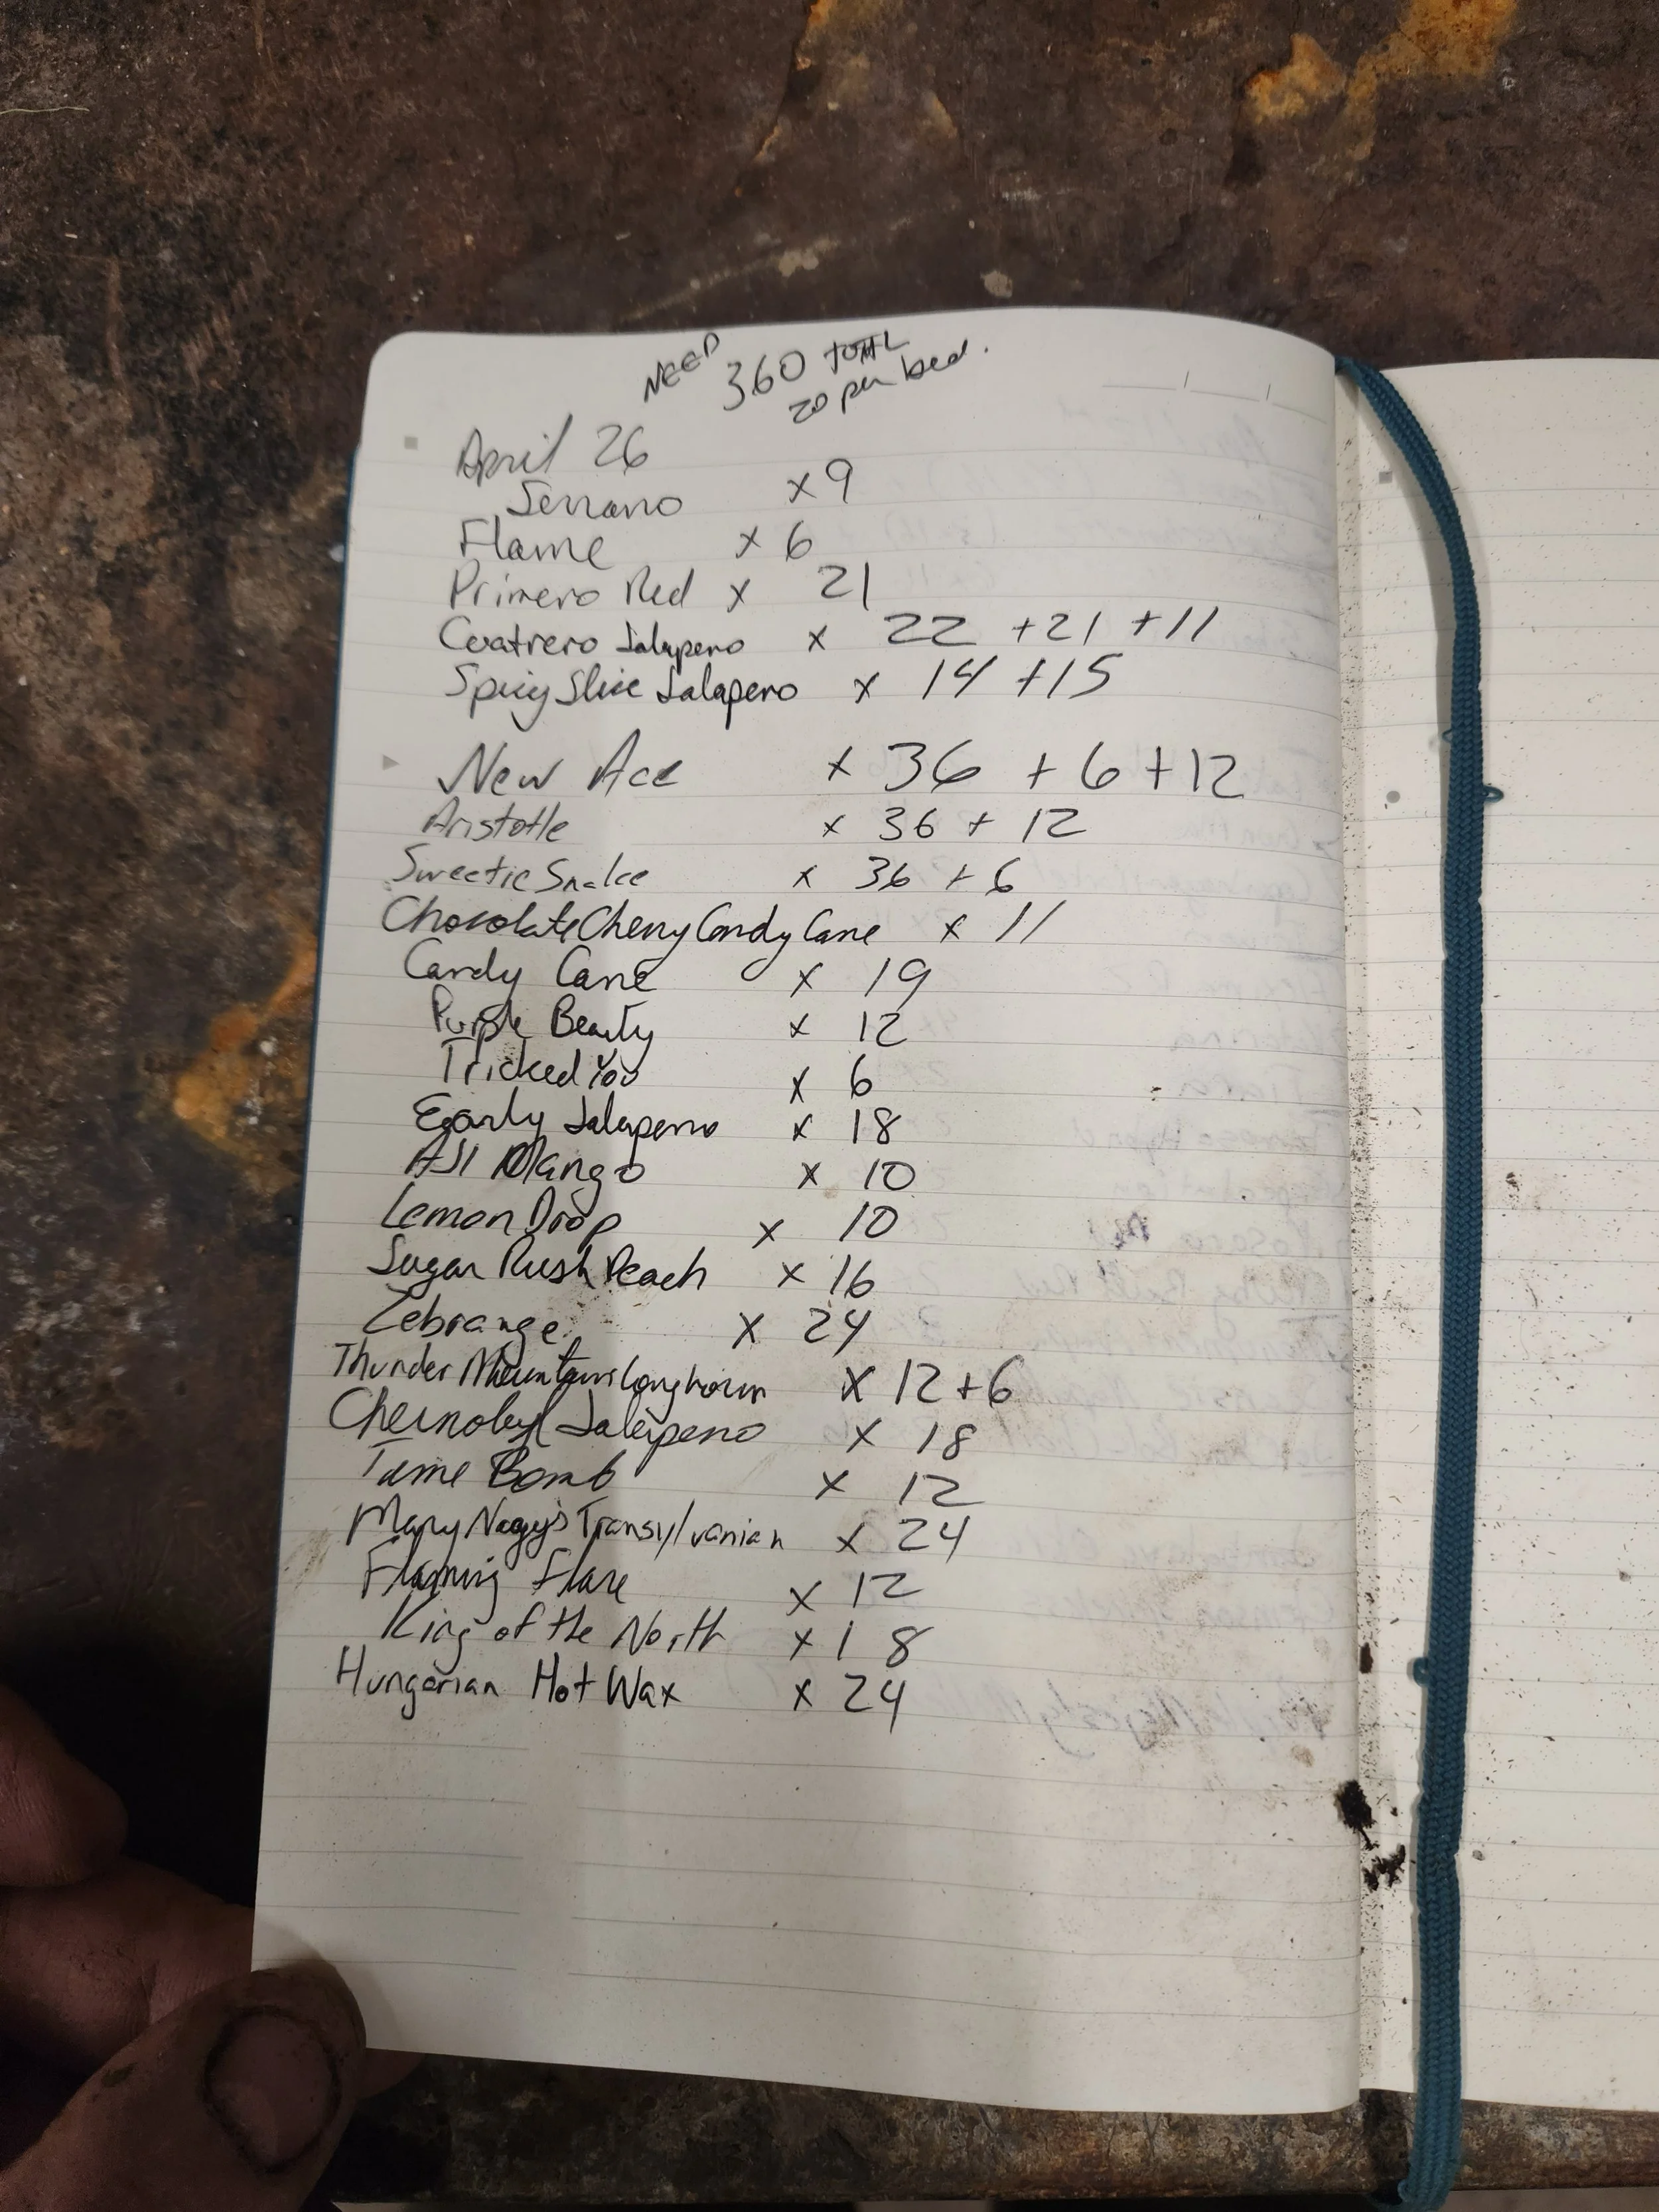 NEED 360 TOTAL
20 per bed.
April 26
Serrano x 9
Flame x 6
Primero Red x 21
Cuatrero Jalapeno x 22 + 21 + 11
Spicy Slice Jalapero x 14 + 15
New Ace x 36 + 6 + 12
Aristotle x 36 + 12
Sweetie Snake x 36 + 6
Chocolate Cherry Candy Cane x 11
Candy Cane x 19
Purple Beauty x 12
Tricked You x 6
Early Jalapeno x 18
AJI Mango x 10
Lemon Drop x 10
Sugar Rush Peach x 16
Zebrange x 24
Thunder Mountain Longhorn x 12 + 6
Chernobyl Jalepeno x 18
Time Bomb x 12
Mary Nagy's Transylvanian x 24
Flaming Flare x 12
King of the North x 18
Hungarian Hot Wax x 24